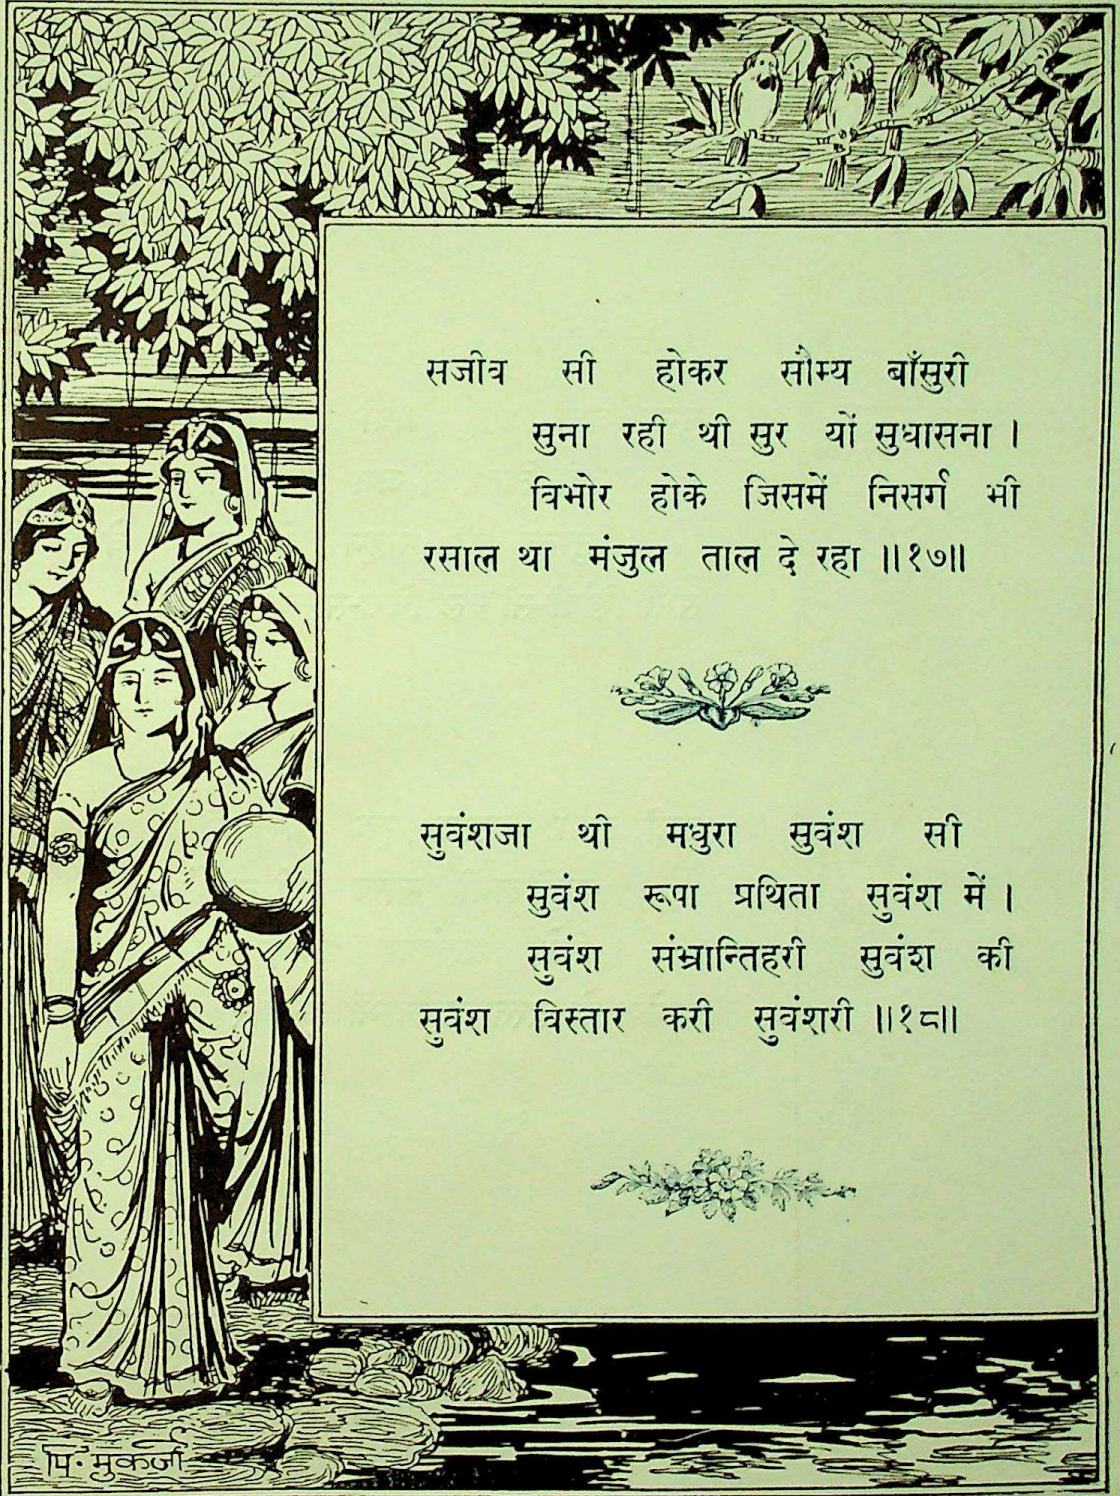 सजीव सी होकर सौम्य बाँसुरी
सुना रही थी सुर यों सुधासना ।
विभोर होके जिसमें निसर्ग भी
रसाल था मंजुल ताल दे रहा ॥१७॥
सुवंशजा थी मधुरा सुवंश सी
सुवंश रूपा प्रथिता सुवंश में ।
सुवंश संभ्रान्तिहरी सुवंश की
सुवंश विस्तार करी सुवंशरी ॥१८॥
पि. मुकर्जी